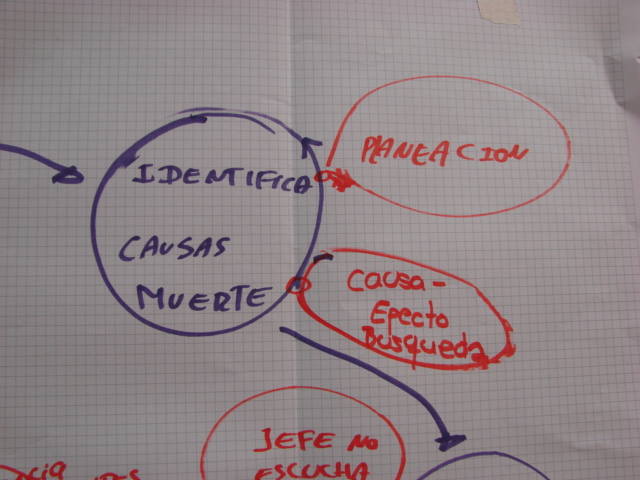 IDENTIFICA
CAUSAS
MUERTE
PLANEACION
CAUSA -
EPECTO
BUSQUEDA
JEFE NO
ESCUCHA